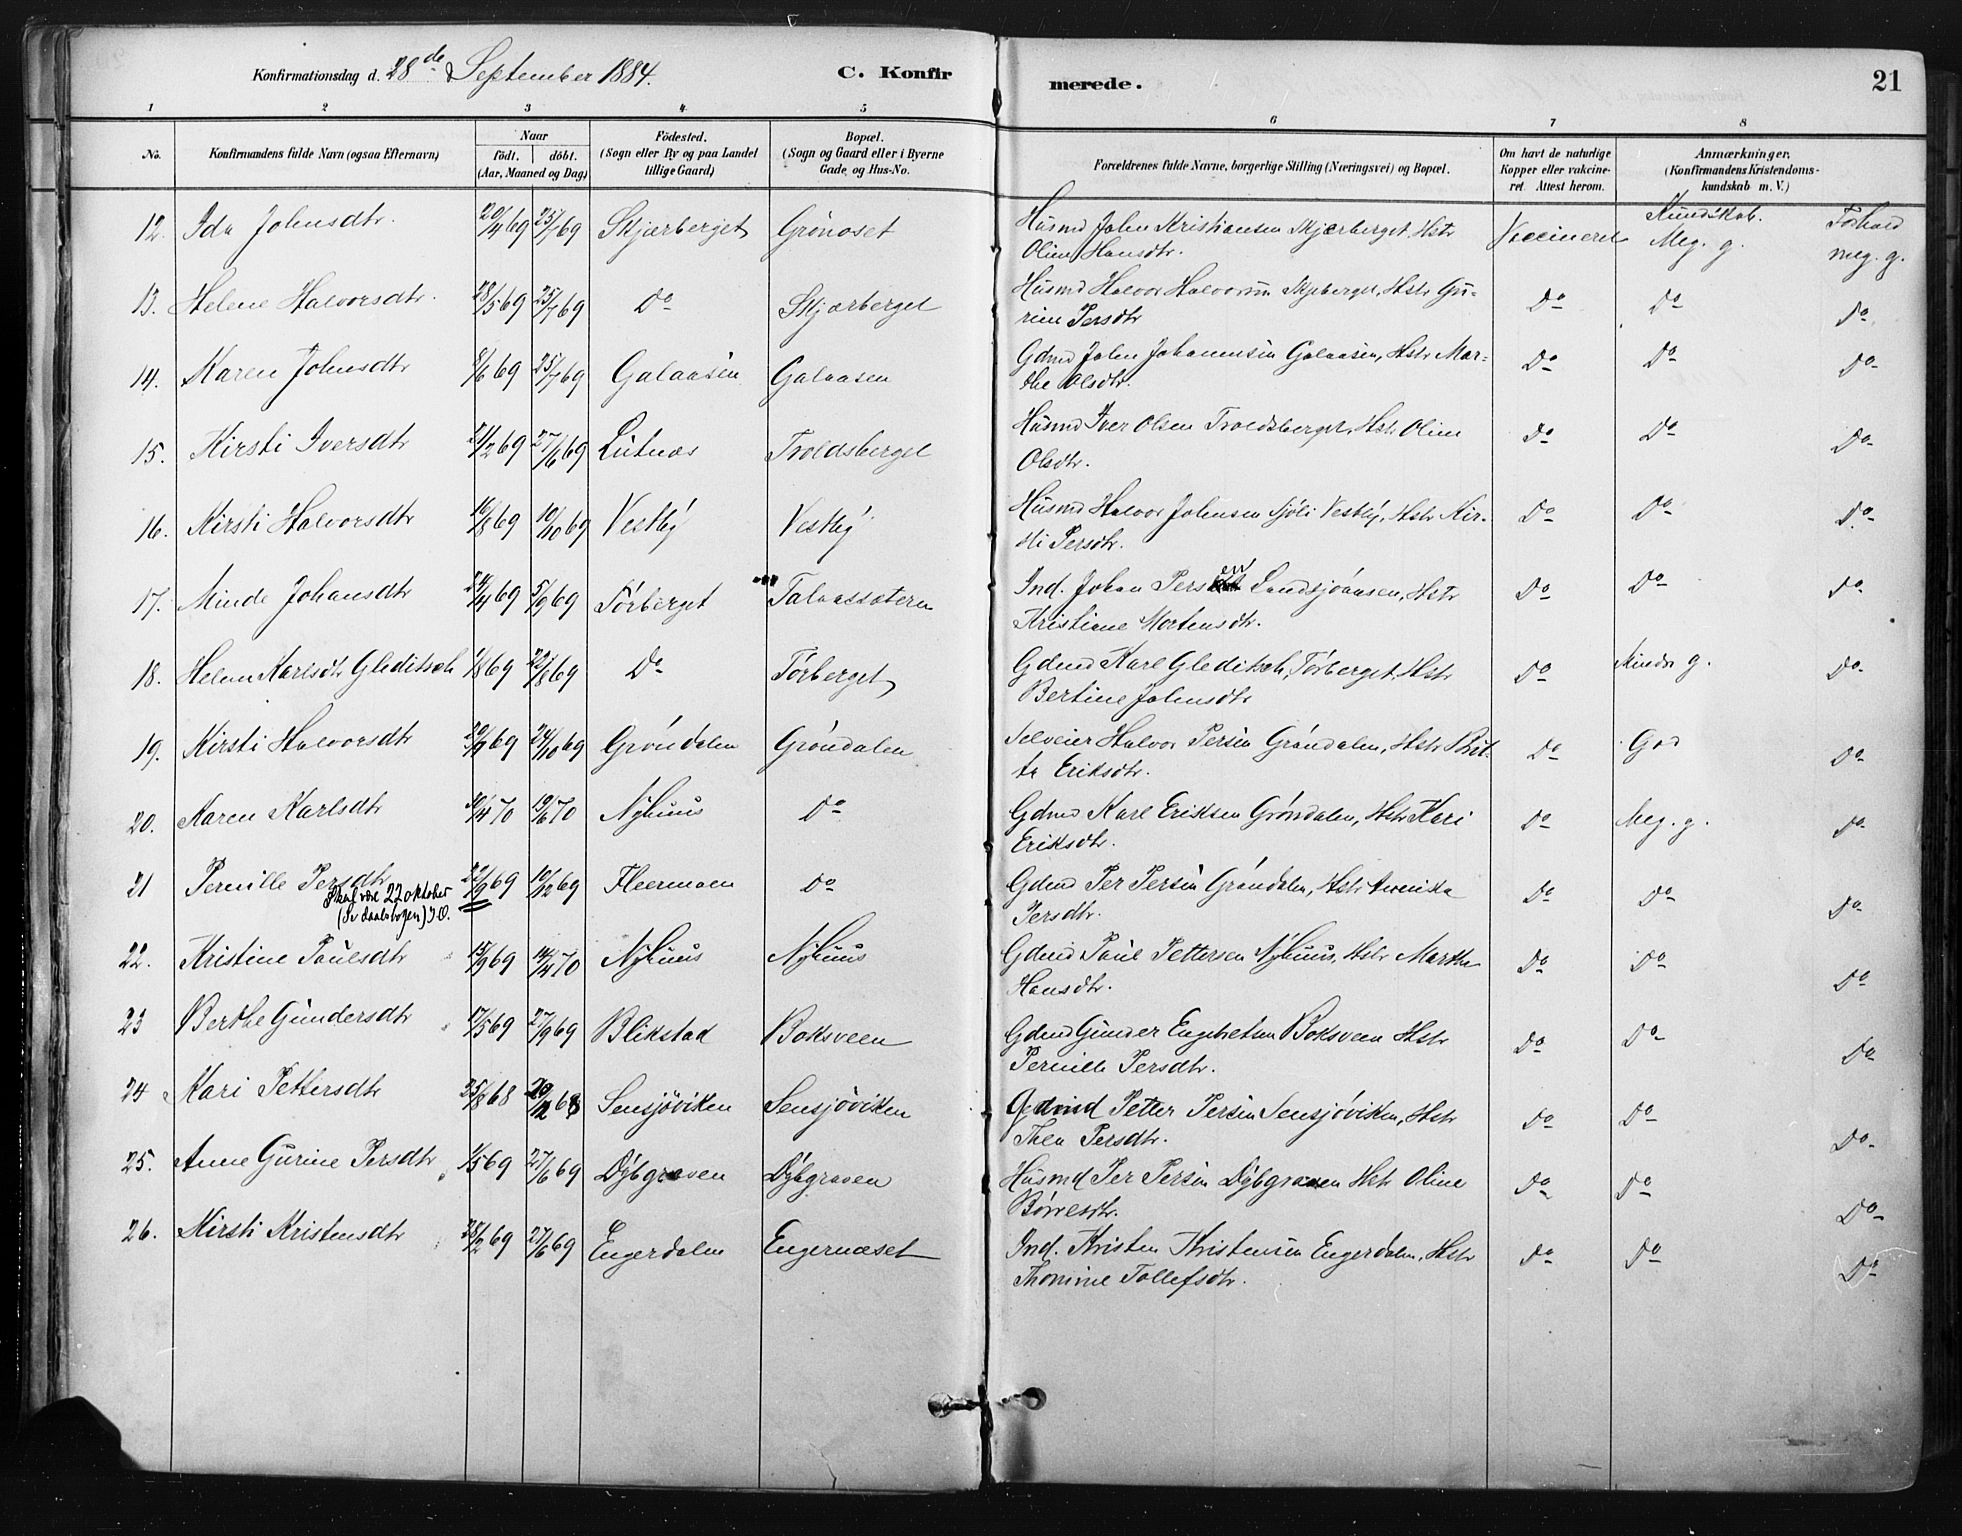 Konfirmationsdag d. 28de September 1884. C. Konfirmerede. 21
1 2 3 4 5 6 7 8
No. Konfirmandens fulde Navn (ogsaa Efternavn) Naar födt. döbt. (Aar, Maaned og Dag) Födested. (Sogn eller By og paa Landet tillige Gaard) Bopæl. (Sogn og Gaard eller i Byerne Gade og Hus-No. Forældrenes fulde Navne, borgerlige Stilling (Næringsvei) og Bopæl. Om havt de naturlige Kopper eller vakcineret. Attest herom. Anmærkninger. (Konfirmandens Kristendomskundskab m. V.)
Kundskab. Forhold
12. Ida Johnsdtr. 20/4 69 25/7 69 Skjærberget Grönoset Husmd John Kristiansen Skjærberget Hstr Vaccineret Meg. g. meg. g.
Oline Hansdtr.
13. Helene Halvorsdtr. 28/5 69 25/7 69 Do Skjærberget Husmd Halvor Halvorsen Skjeberget, Hstr Gu- Do Do Do
rine Persdtr
14. Karen Johnsdtr 8/6 69 25/7 69 Galaasen Galaasen Gdmd John Johannesen Galaasen, Hstr Mar- Do Do Do
the Olsdtr.
15. Kirsti Iversdtr 21/2 69 27/6 69 Lutnæs Troldsberget Husmd Iver Olsen Troldsberget, Hstr Oline Do Do Do
Olsdtr.
16. Kirsti Halvorsdtr 16/8 69 10/10 69 Vestby Vestby Husmd Halvor Johnsen Sjöli Vestby, Hstr Kir- Do Do Do
sti Persdtr.
17. Minde Johansdtr 24/4 69 5/9 69 Törberget Talaassætern Ind. Johan Persen Landsjöaasen, Hstr Do Do Do
Kristiane Mortensdtr.
18. Helene Karlsdtr Gleditsch 1/8 69 22/8 69 Do Törberget Gdmd Karl Gleditsch, Törberget, Hstr Do Mindr g. Do
Bertine Johnsdtr
19. Kirsti Halvorsdtr 20/9 69 24/10 69 Gröndalen Gröndalen Selveier Halvor Persen Gröndalen, Hstr Brit- Do God Do
ta Eriksdtr.
20. Karen Karlsdtr 30/4 70 19/6 70 Nyhuus Do Gdmd Karl Eriksen Gröndalen, Hstr Kari Do Meg. g. Do
Eriksdtr.
21 Pernille Persdtr 22/9 69 10/12 69 Fleermoen Do Gdmd Per Persen Gröndalen, Hstr Do Do Do
Skal være 22 oktober Persdtr.
22. Kristine Paulsdtr 15/9 69 14/4 70 Nyhuus Nyhuus Gdmd Paul Pettersen Nyhuus, Hstr Marthe Do Do Do
Hansdtr.
23 Berthe Gundersdtr 17/5 69 27/9 69 Blikstad Boksveen Gdmd Gunder Engebretsen Boksveen Hstr Do Do Do
Pernille Persdtr.
24 Kari Pettersdtr 25/8 68 20/12 68 Sensjöviken Sensjöviken Gdmd Petter Persen Sensjöviken, Hstr Do Do Do
Thea Persdtr.
25. Anne Gurine Persdtr 1/5 69 27/6 69 Dybgraven Dybgraven Husmd Per Persen Dybgraven Hstr Oline Do Do Do
Börresdtr.
26. Kirsti Kristensdtr 28/2 69 27/6 69 Engerdalen Engernæset Ind. Kristen Kristensen Engerdalen, Hstr Do Do Do
Thomine Tollefsdtr.